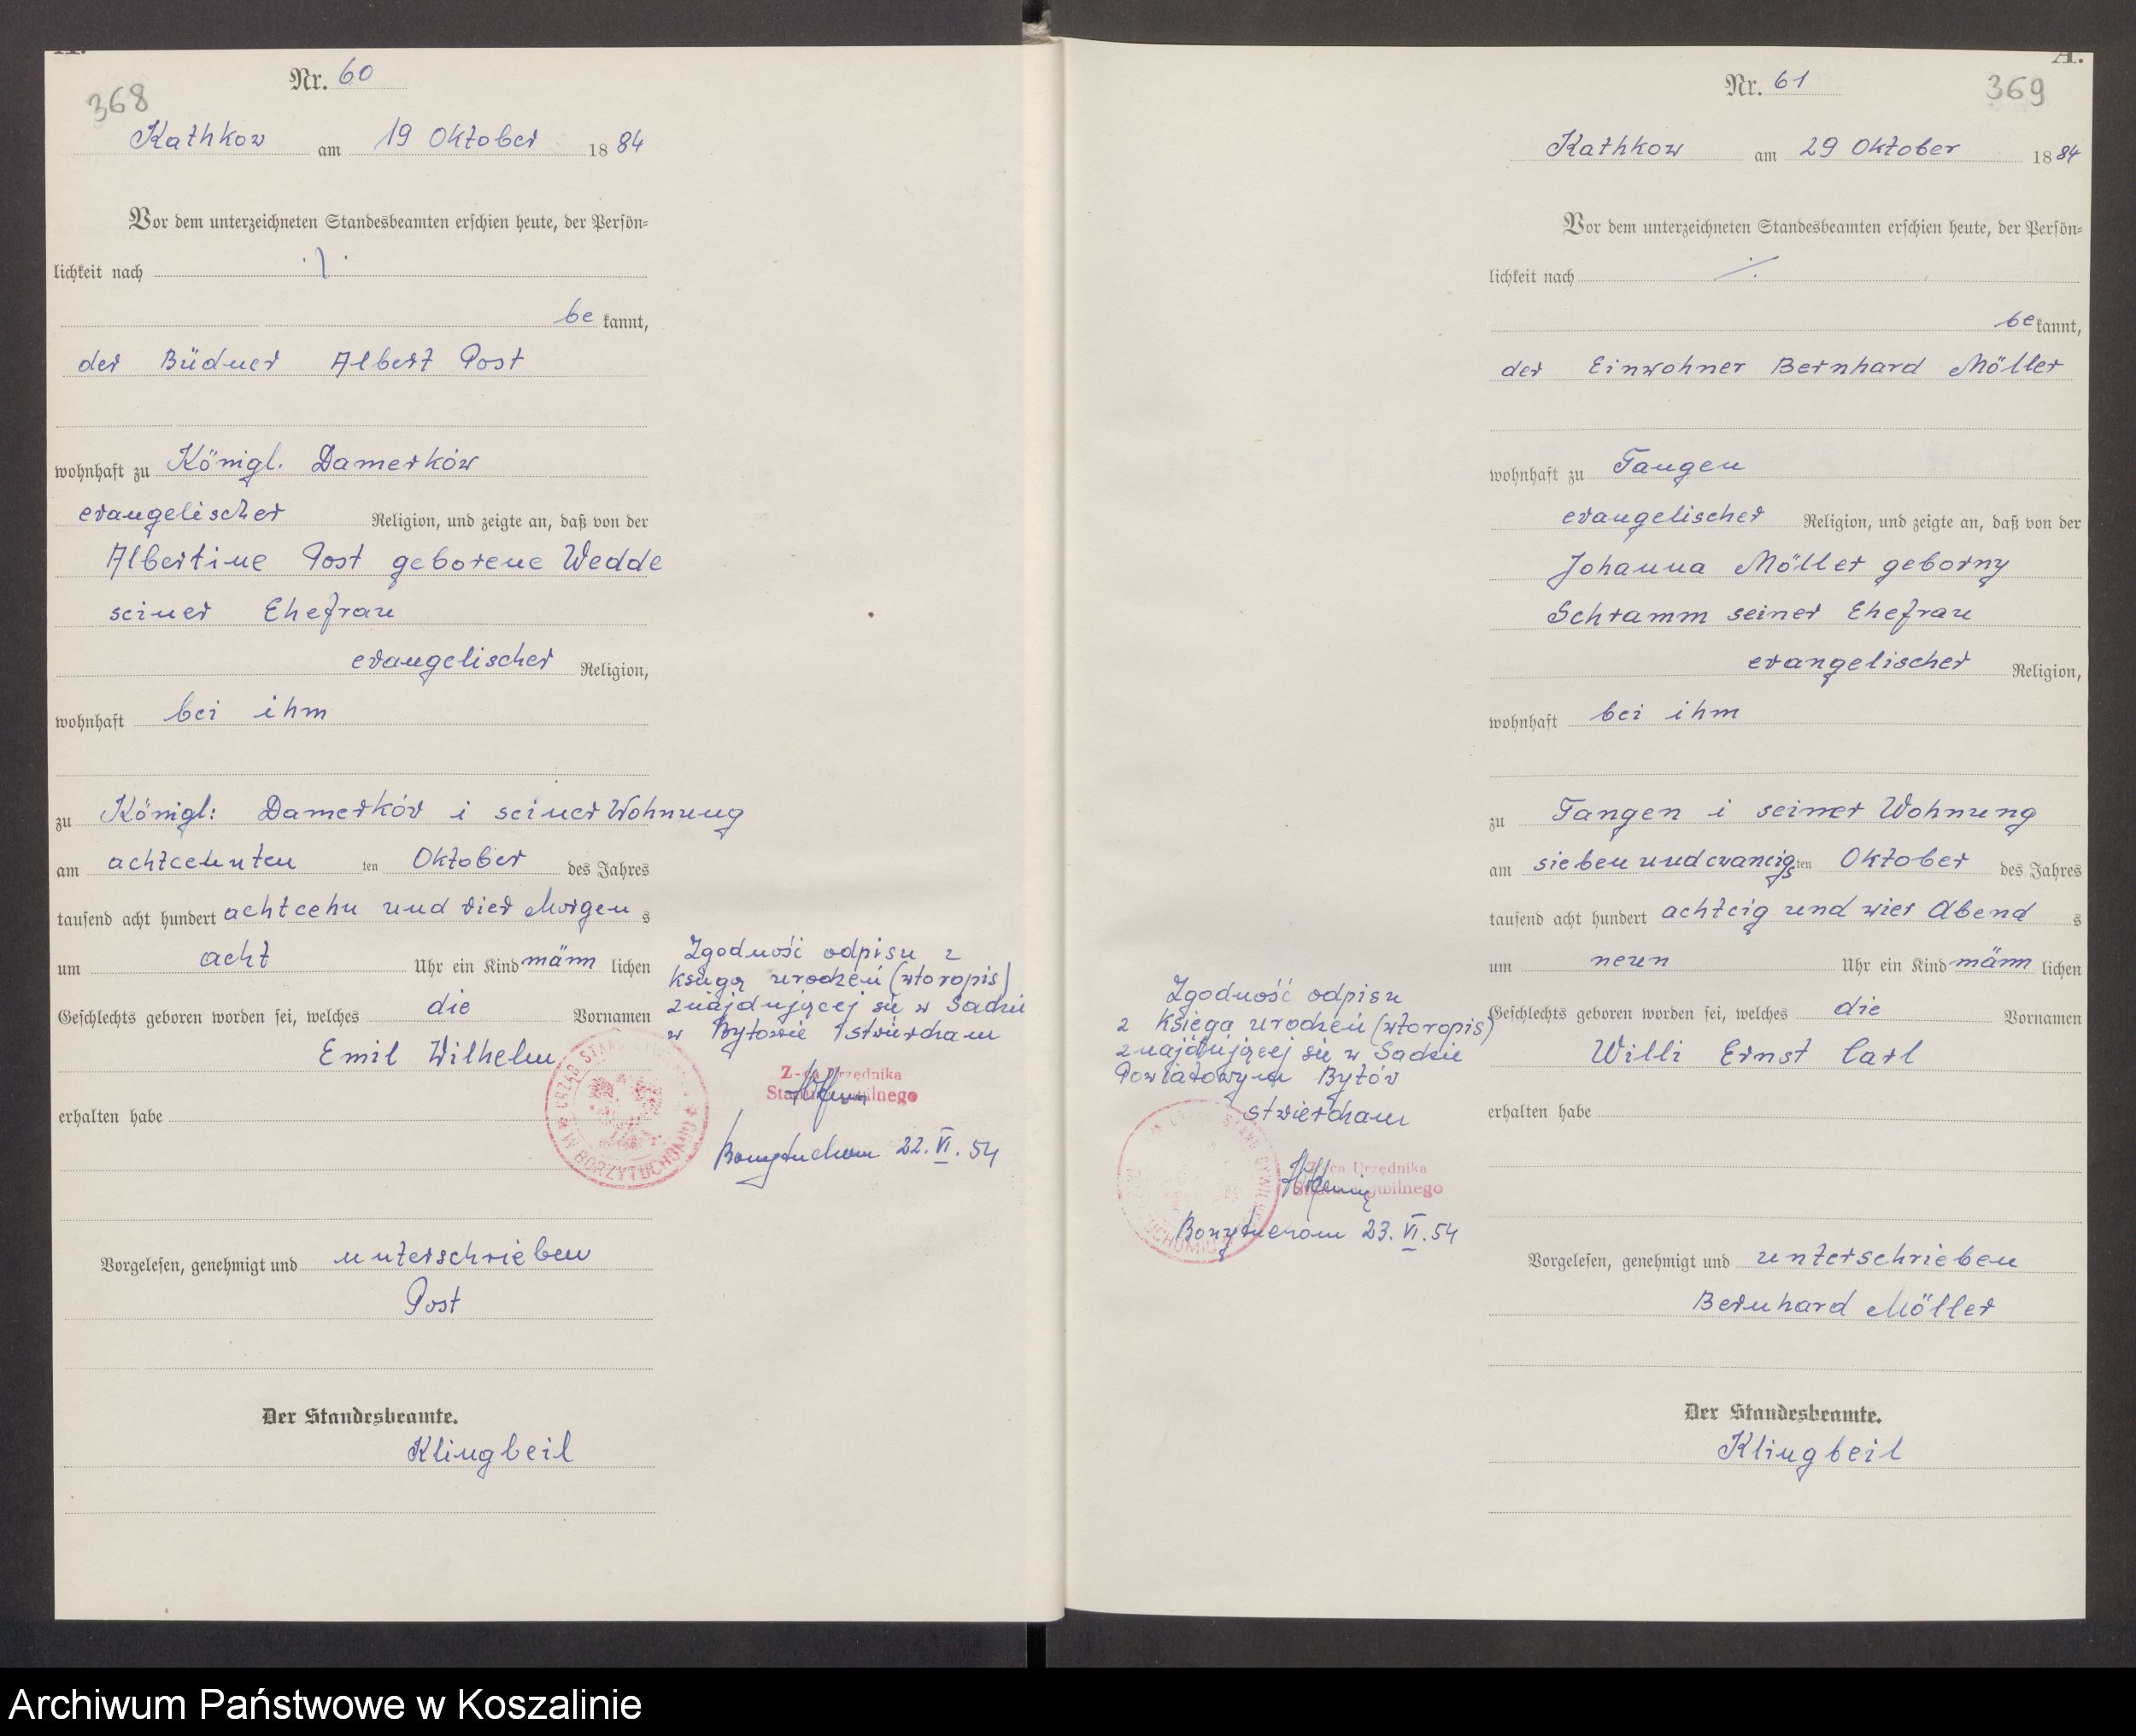 A.
368
Nr. 60
Kathkow am 19 Oktober 1884
Vor dem unterzeichneten Standesbeamten erschien heute, der Persön=
lichkeit nach ./.
be kannt,
der Büdner Albert Post
wohnhaft zu Königl. Damerków
evangelischer Religion, und zeigte an, daß von der
Albertine Post geborene Wedde
seiner Ehefrau
evangelischer Religion,
wohnhaft bei ihm
zu Königl: Damerków i seiner Wohnung
am achtcehnten ten Oktober des Jahres
tausend acht hundert achtcehn und vier Morgen s
um acht Uhr ein Kind männ lichen
Geschlechts geboren worden sei, welches die Vornamen
Emil Wilhelm
erhalten habe
Vorgelesen, genehmigt und unterschrieben
Post
Der Standesbeamte.
Klingbeil
Zgodność odpisu z
księgą urodzeń (wtoropis)
znajdującej się w Sądzie
w Bytowie stwierdzam
Z-ca Urzędnika
Stanu Cywilnego
Borzytuchom 22.VI.54
URZĄD STANU CYWILNEGO W BORZYTUCHOMIU
A.
369
Nr. 61
Kathkow am 29 Oktober 1884
Vor dem unterzeichneten Standesbeamten erschien heute, der Persön=
lichkeit nach ./.
be kannt,
der Einwohner Bernhard Möller
wohnhaft zu Tangen
evangelischer Religion, und zeigte an, daß von der
Johanna Möller geborny
Schramm seiner Ehefrau
evangelischer Religion,
wohnhaft bei ihm
zu Tangen i seiner Wohnung
am siebenundcwancigs ten Oktober des Jahres
tausend acht hundert achtcig und wier Abend s
um neun Uhr ein Kind männ lichen
Geschlechts geboren worden sei, welches die Vornamen
Willi Ernst Carl
erhalten habe
Vorgelesen, genehmigt und unterschrieben
Bernhard Möller
Der Standesbeamte.
Klingbeil
Zgodność odpisu
z księgą urodzeń (wtoropis)
znajdującej się w Sądzie
Powiatowym Bytów
stwierdzam
Z-ca Urzędnika
Stanu Cywilnego
Borzytuchom 23.VI.54
Archiwum Państwowe w Koszalinie